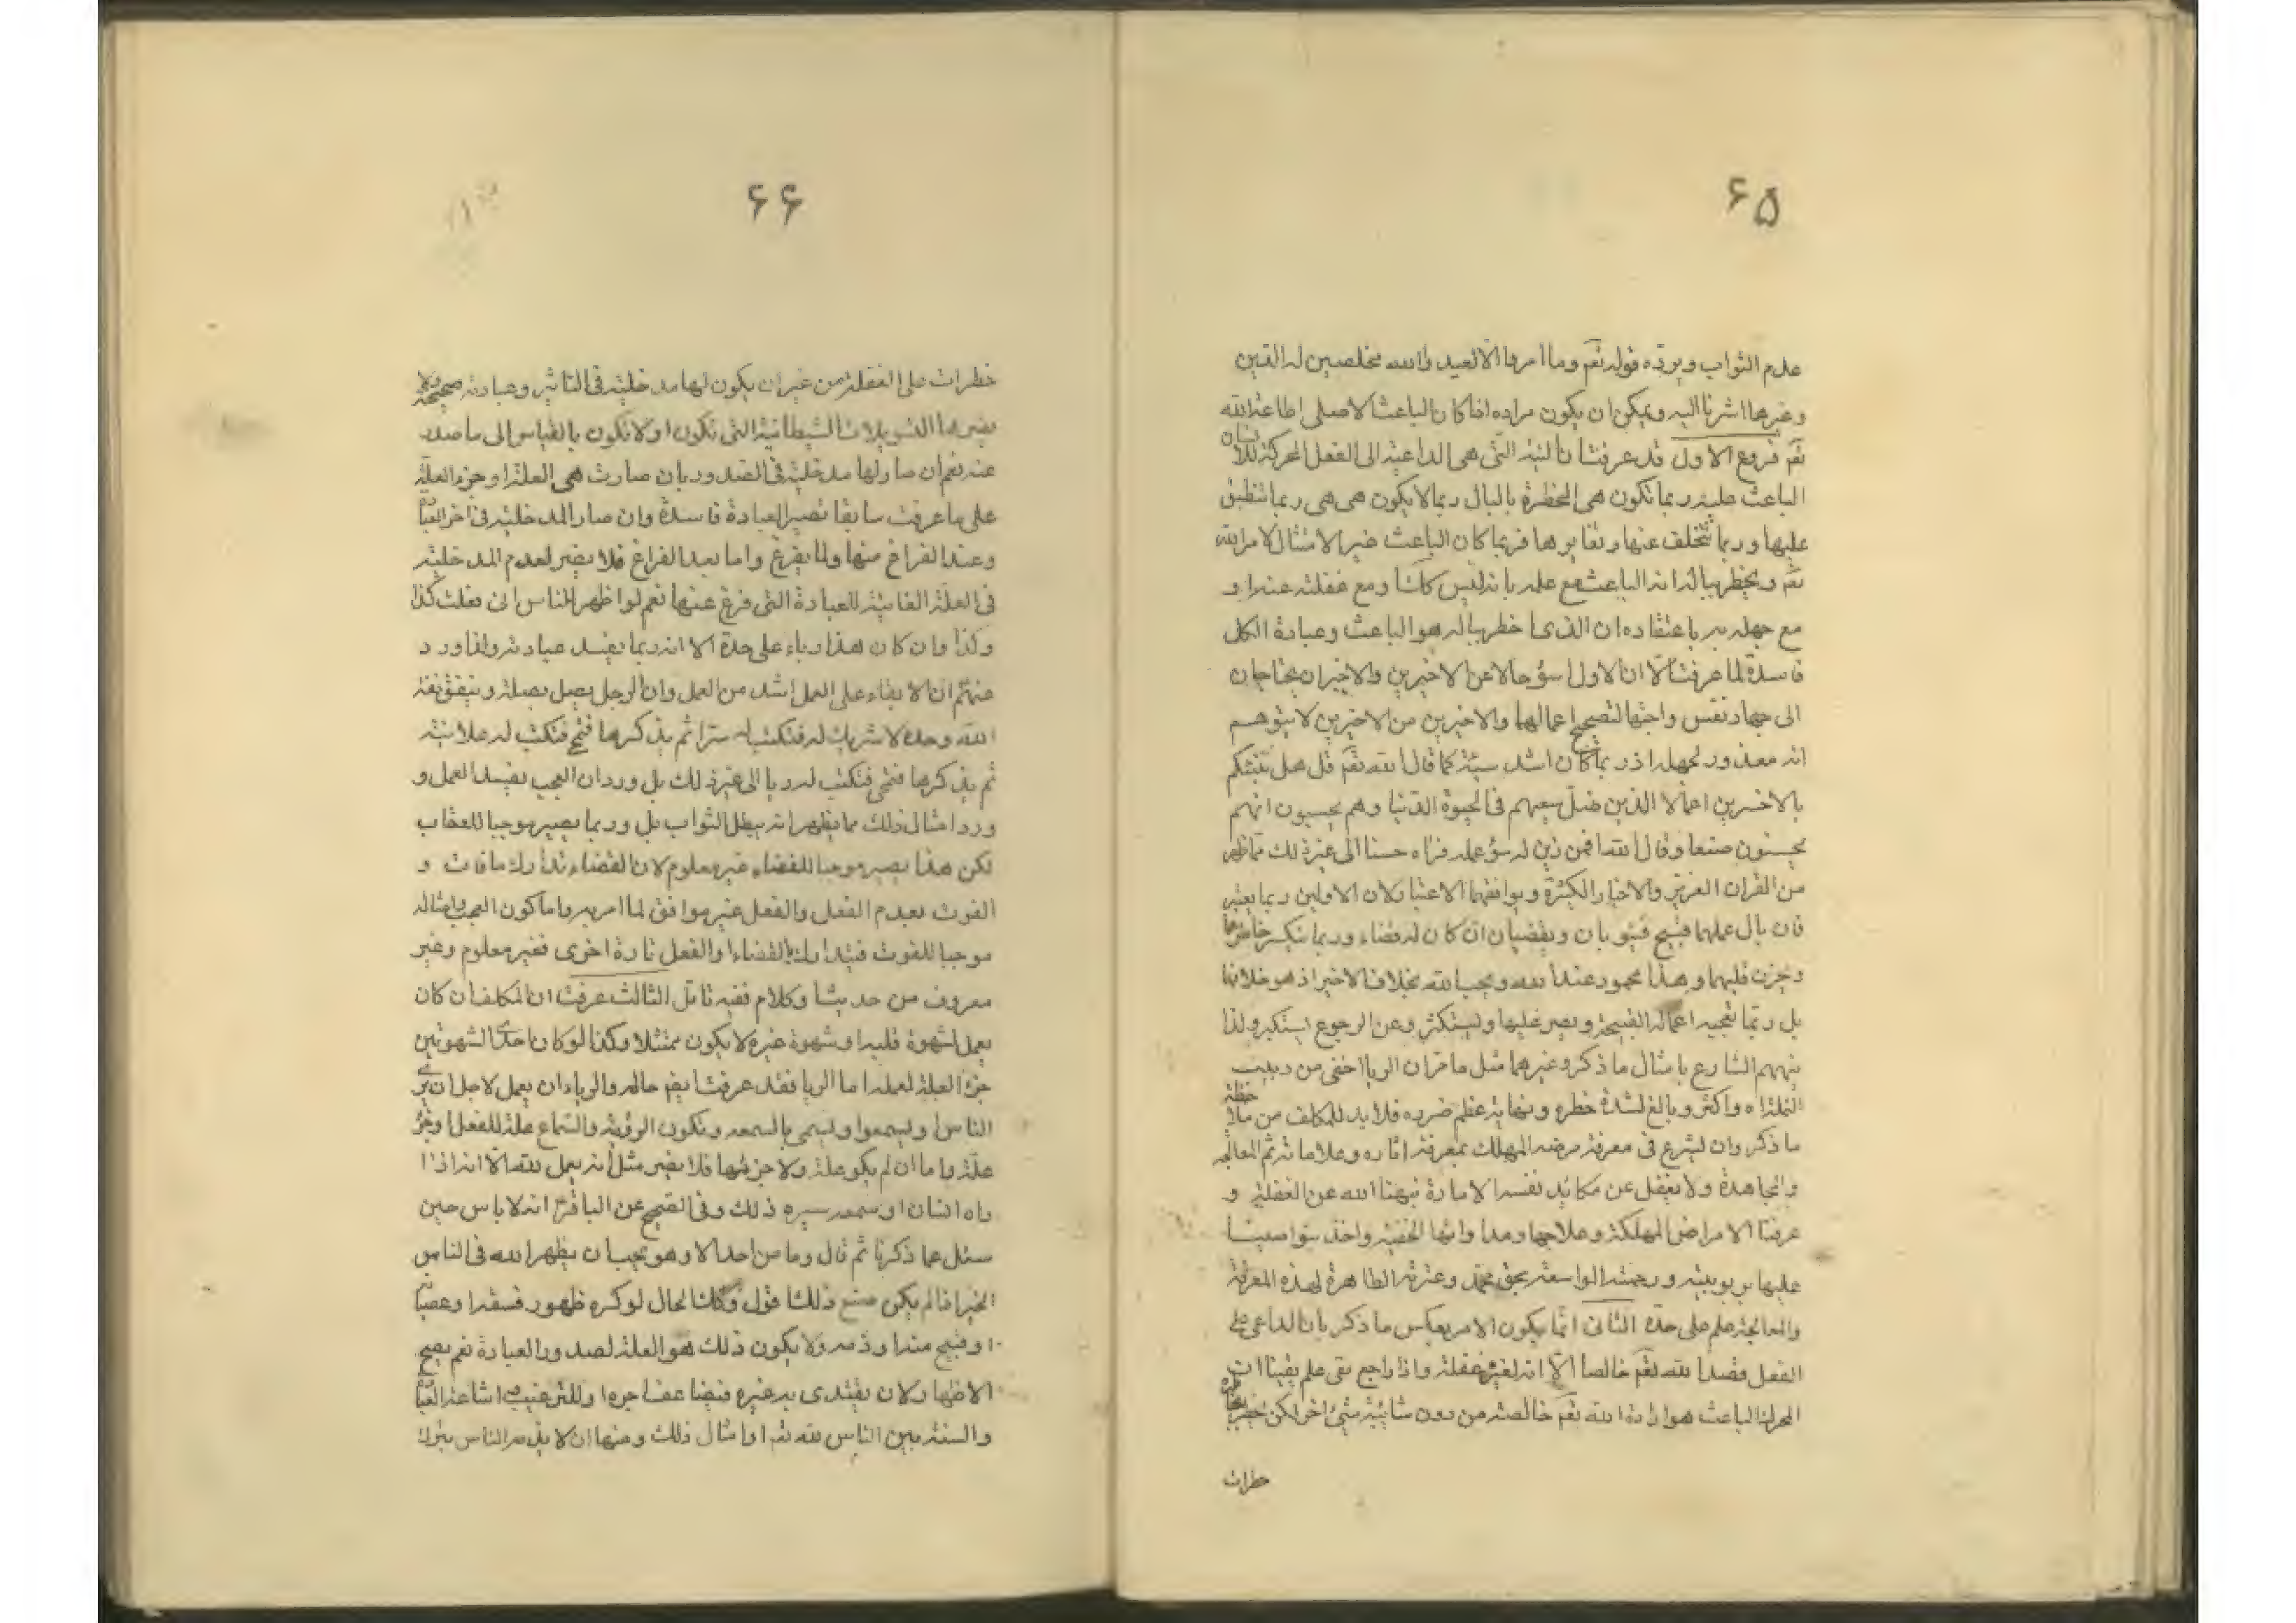 ۶۵
علدم الثواب ويردّه قوله تعم وما امروا الا ليعبدوا الله مخلصين له الدين
وغيرها اشرنا اليه ويمكن ان يكون مراده اذا كان الباعث الاصلى اطاعة الله
تعم فروع الاول قد عرفت ان النية التى هى الداعية الى الفعل المحركة للانسان
الباعث عليه ربما تكون هى المخطرة بالبال ربما لا يكون هى هى ربما تنطبق
عليها وربما تتخلف عنها وتغايرها فربما كان الباعث غير الامتثال لامر الله
تعم ويخطر بباله انه الباعث مع علمه بانه ليس كك ومع غفلته عنه او
مع جهله به باعتقاده ان الذى خطر بباله هو الباعث وعبادة الكل
فاسدة لما عرفت الا ان الاول اسؤ حالا من الاخيرين والاخيران يحتاجان
الى جهاد نفس واجتها لتصحيح اعمالها والاخيرين من الاخيرين لا يتوهم
انه معذور لجهله اذ ربما كان اشد سيئة كما قال الله تعم قل هل ننبئكم
بالاخسرين اعمالا الذين ضلّ سعيهم فى الحيوة الدنيا وهم يحسبون انهم
يحسنون صنعا وقال الله افمن زين له سؤ عمله فراه حسنا الى غير ذلك مما ظهر
من القران العزيز والاخبار الكثيرة ويوافقهما الاعتبار لان الاولين ربما يعتبر
فان بال عملهما قبيح فيتوبان ويقضيان ان كان له قضاء وربما ينكسر خاطرهما
ويحزن قلبهما وهذا محمود عند الله ويحب الله بخلاف الاخير اذ هو خلافها
بل ربما تعجبه اعماله القبيحة ويصر عليها وليستكثر وعن الرجوع يستكبر ولذا
ينههم الشارع بامثال ما ذكر وغيرهما مثل ما مر ان الريا اخفى من دبيب
النملة اه واكثر وبالغ لشدة خطره ونهاية عظم ضرره فلا بد للمكلف من ملاحظة
ما ذكر وان ليشرع فى معرفة مرضه المهلك بمعرفة اثاره وعلاماته ثم المعالجه
والمجاهدة ولا يغفل عن مكائد نفسه الامارة نبهنا الله عن الغفلة و
عرفنا الامراض المهلكة وعلاجها ومداواتها الخفية واخذ بنواصينا
عليها بربوبيته ورحمته الواسعة بحق محمد وعترته الطاهرة لهذه المعرفة
والمعالجة علم على حدة الثانى انما يكون الامر بعكس ما ذكر بان الداعى على
الفعل قصد الله تعم خالصا الا انه لفى غفلة واذا راجع بقى علم يقينا ان
المحرك الباعث هو ارادة الله تعم خالصة من دون شائبة شئ اخر لكن خطر بخاطره
خطرات
۶۶
خطرات على الغفلة من غير ان يكون لها مدخلية فى التاثير وعبادته صحيحة ولا
يضرها التسويلات الشيطانية التى تكون او لا تكون بالقياس الى ما صدر
عنه نعم ان صار لها مدخلية فى الصدور بان صارت هى العلة او جزء العلة
على ما عرفت سابقا تصير العبادة فاسدة وان صار المدخلية فى اخر العبادة
وعند الفراغ منها ولما يفرغ واما بعد الفراغ فلا يضر لعدم المدخلية
فى العلة الغائية للعبادة التى فرغ عنها نعم لو اظهر للناس انى فعلت كذا
وكذا وان كان هذا رياء على حدة الا انه ربما يفسد عبادته واذا ورد
عنهم ان الابقاء على العمل اشد من العمل وان الرجل يصل بصلة وينفق نفقة
الله وحده لا شريك له فتكتب له سترا ثم يذكرها فتمح فتكتب له علانية
ثم يذكرها فتمحى فتكتب له ريا الى غير ذلك بل ورد ان العجب يفسد العمل و
ورد امثال ذلك مما يظهر انه يبطل الثواب بل وربما يصير موجبا للعقاب
لكن هذا يصير موجبا للقضاء غير معلوم لان القضاء تدارك ما فات و
الفوت بعدم الفعل والفعل غير موافق لما امر به واما كون العجب وامثاله
موجبا للفوت فيتدارك بالقضاء او الفعل تارة اخرى فغير معلوم وغير
معروف من حديث او كلام فقيه تامل الثالث عرفت ان المكلف ان كان
يعمل لشهوة قلبه او شهوة غيره لا يكون ممتثلا وكذا لو كان احدى الشهوتين
جزء العلة لعمله اما الريا فقد عرفت ايضا حاله والرياء ان يعمل لاجل ان يرى
الناس او ليسمعوا ويسمى بالسمعه وتكون الرؤية والسماع علة للفعل او جزء
علة واما ان لم يكن علة ولا جزئها فلا يضر مثل انه يعمل لله الا انه اذا
راه انسان او سمعه سره ذلك وفى الصحيح عن الباقر ع انه لا باس حين
سئل عما ذكرنا ثم قال وما من احد الا وهو يحب ان يظهر الله فى الناس
الخير اذا لم يكن صنع ذلك اقول وكك الحال لو كره ظهور فسقه او عصيانه
او قبيح منه او ذمه ولا يكون ذلك هو العلة لصدور العبادة نعم يصح
الاظهار لان يقتدى به غيره فيضاعف اجره او للترغيب اشاعة العبادة
والسنة بين الناس لله تعم او امثال ذلك ومنها ان لا يذمه الناس بترك